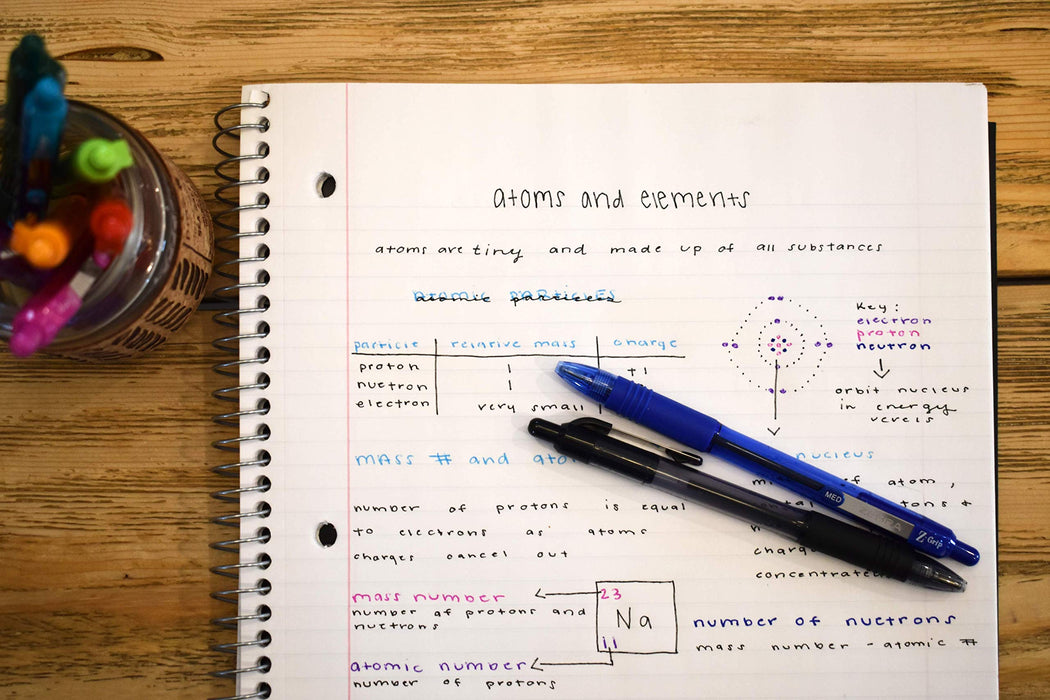 atoms and elements
atoms are tiny and made up of all substances
atomic particles
particle relative mass charge
proton 1 +1
nuetron 1
electron very small
Key:
electron
proton
neutron
orbit nucleus
in energy
verels
mass # and
nucleus
of atom,
number of protons is equal
to electrons as atoms
charges cancel out
mass number
number of protons and
nuetrons
23
Na
11
atomic number
number of protons
number of nuetrons
mass number - atomic #
MED
ZEBRA
Z-Grip